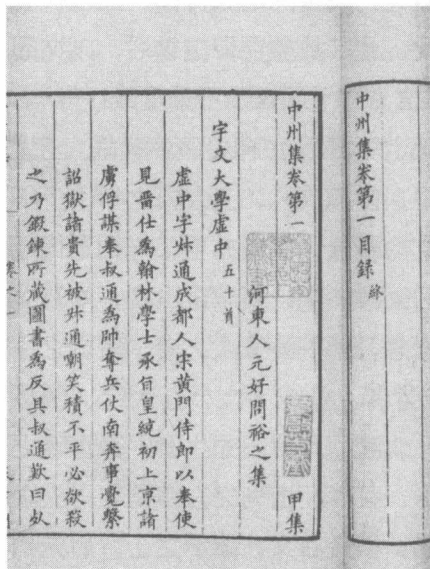 中州集卷第一目録 終
中州集卷第一
河東人元好問裕之集 甲集
宇文大學虛中 五十首
虛中字州通成都人宋黃門侍郎以奉使
見畱仕爲翰林學士承旨皇統初上京諸
虜俘謀奉叔通爲帥奪兵仗南奔事覺繫
詔獄諸貴先被叔通嘲笑積不平必欲殺
之乃鍜鍊所藏圖書爲反具叔通歎曰死